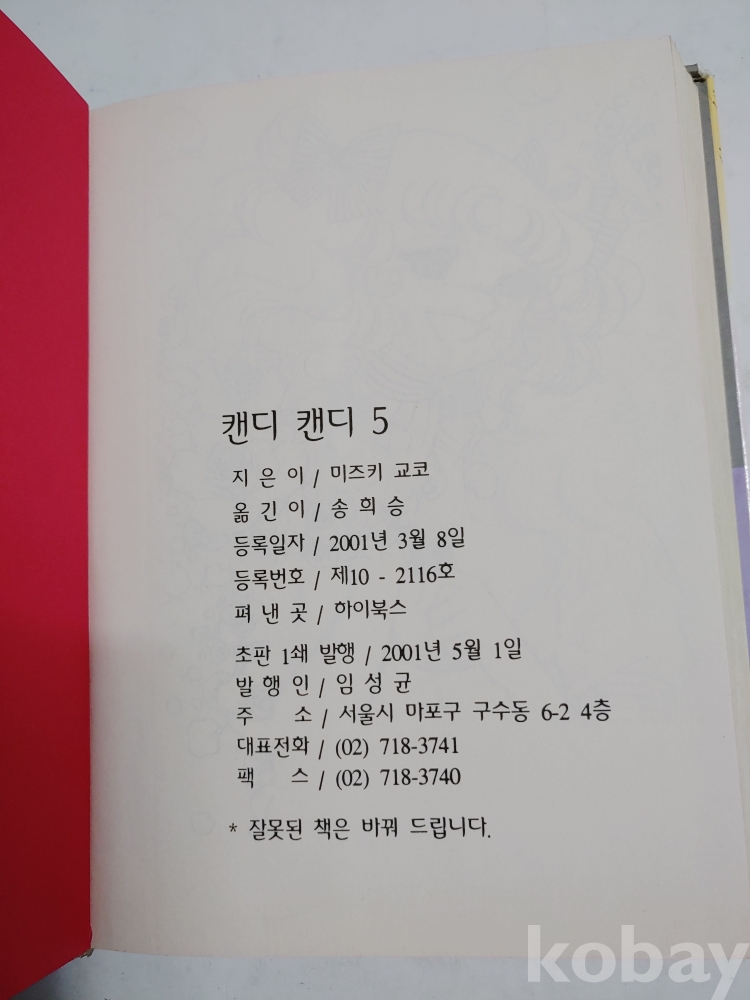 캔디 캔디 5
지 은 이 / 미즈키 교코
옮 긴 이 / 송 희 승
등록일자 / 2001년 3월 8일
등록번호 / 제10 - 2116호
펴 낸 곳 / 하이북스
초판 1쇄 발행 / 2001년 5월 1일
발 행 인 / 임 성 균
주 소 / 서울시 마포구 구수동 6-2 4층
대표전화 / (02) 718-3741
팩 스 / (02) 718-3740
* 잘못된 책은 바꿔 드립니다.
kobay